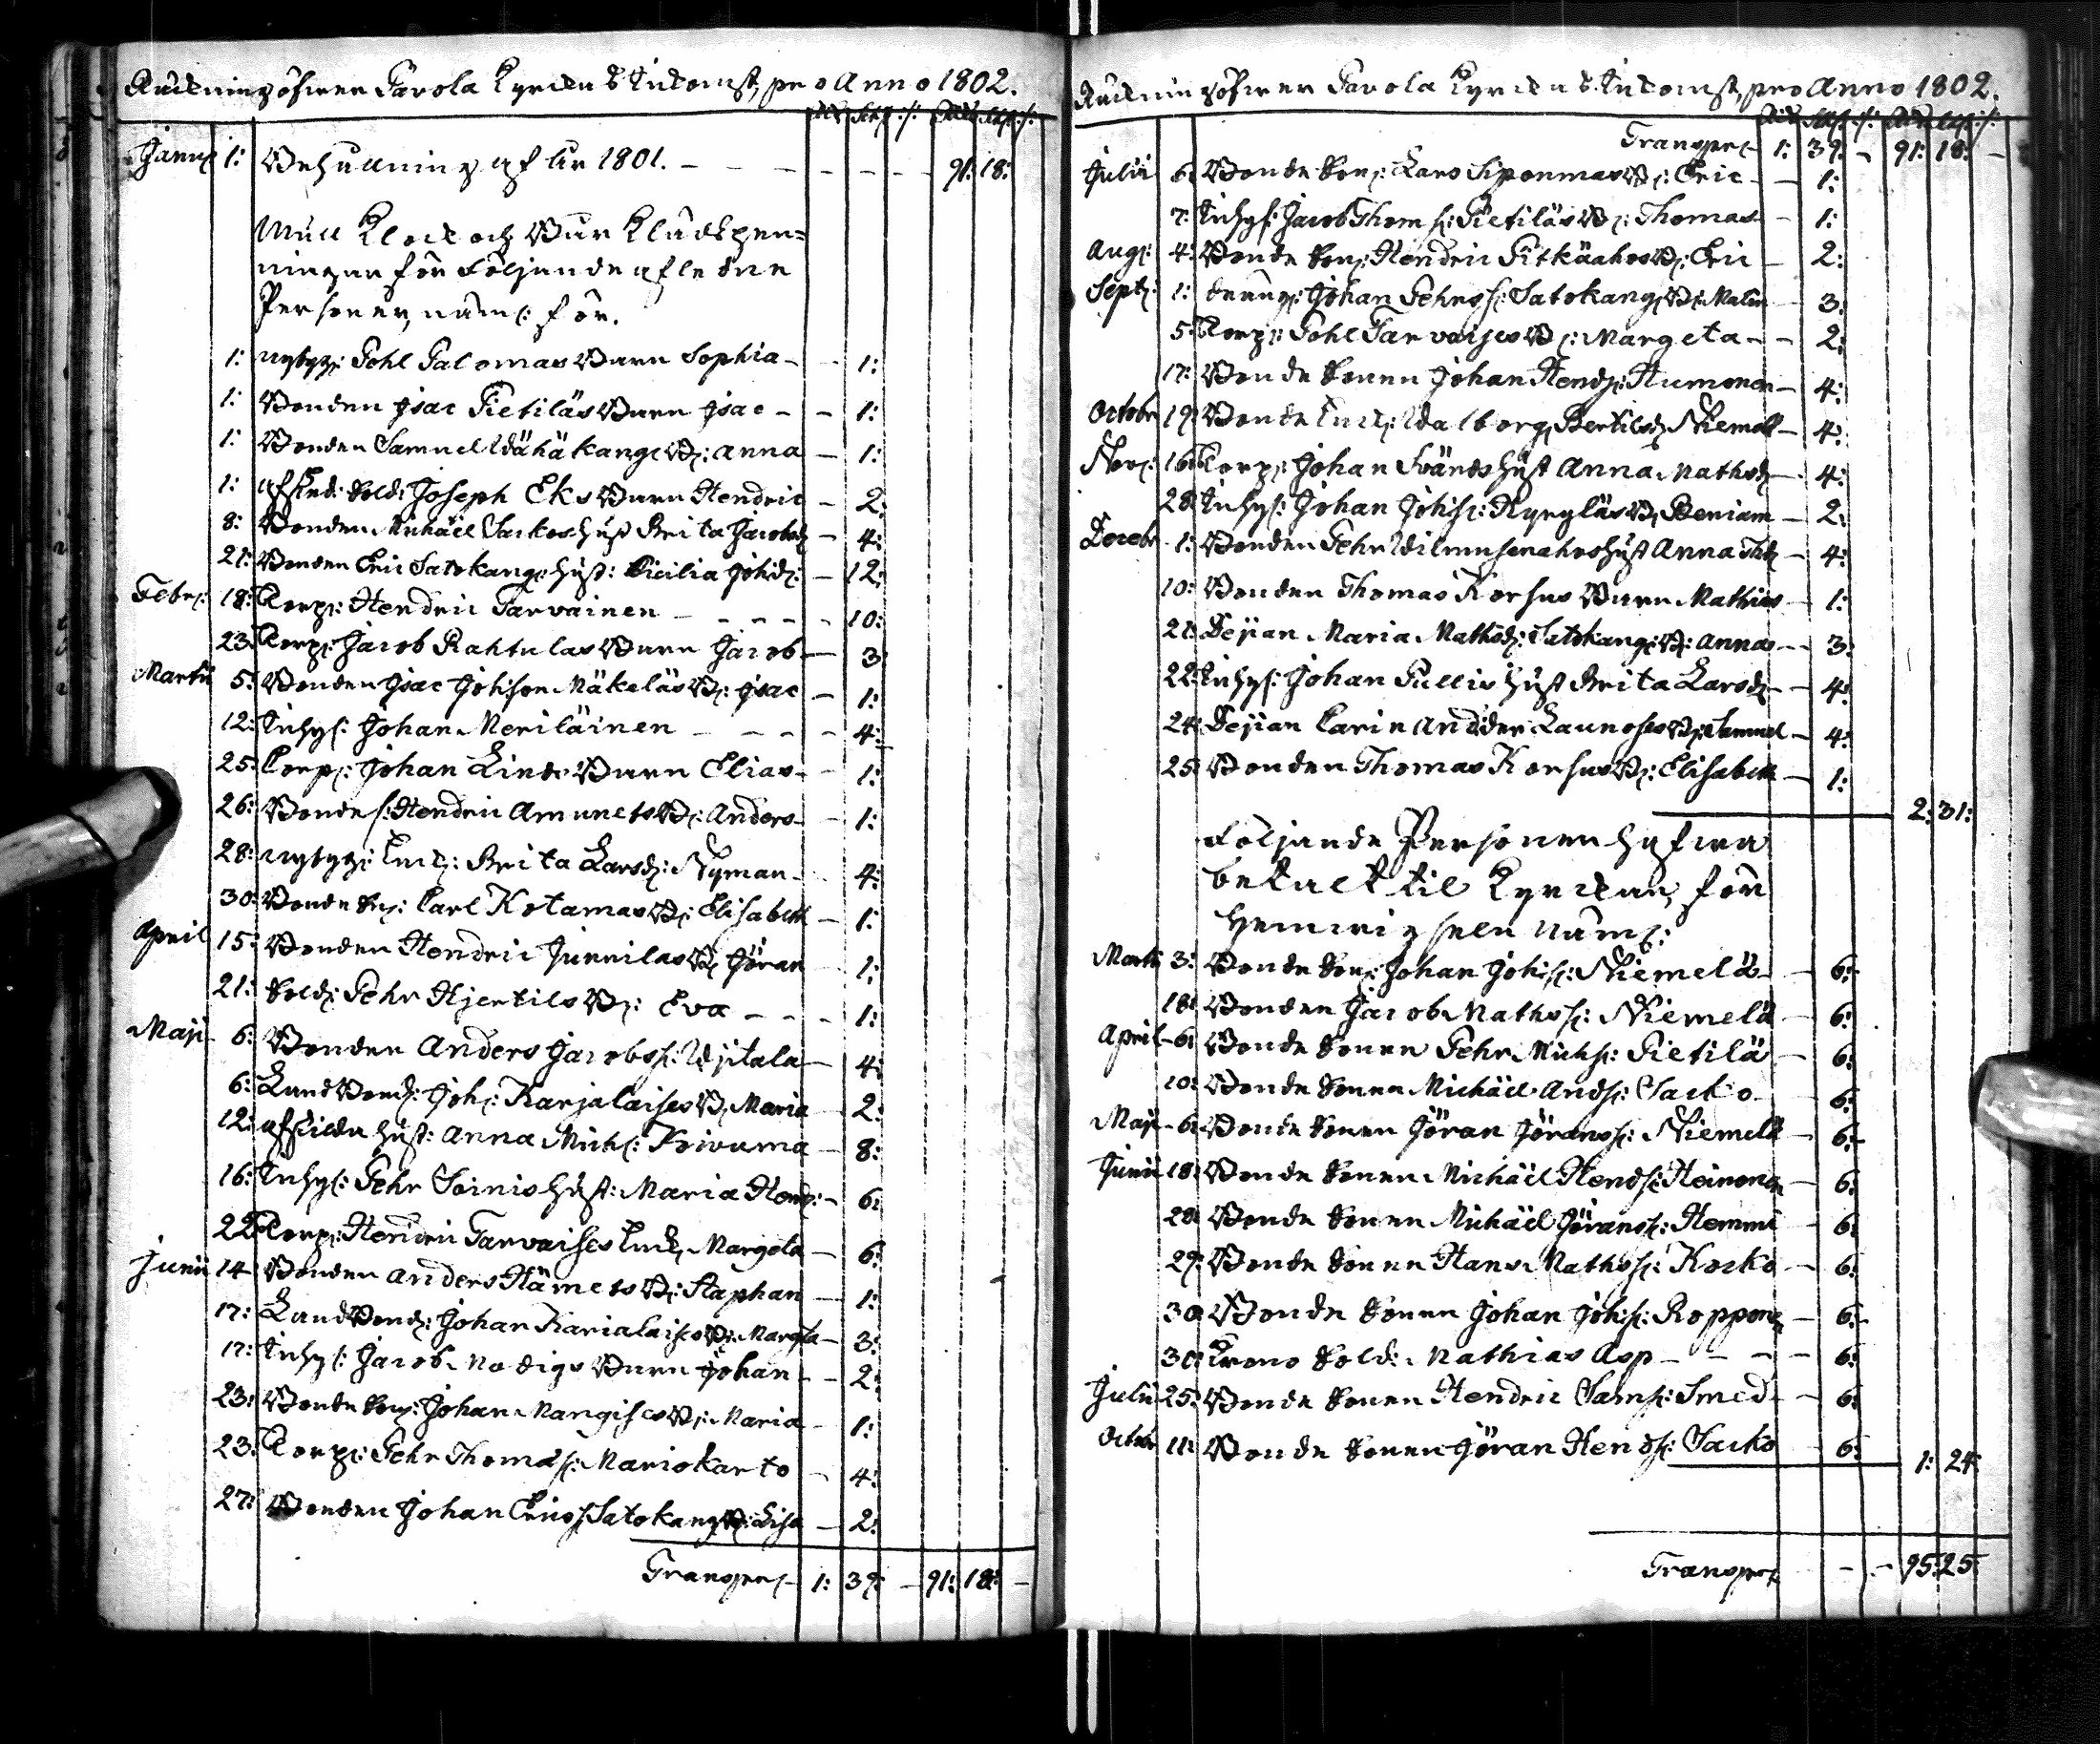 Räkning öfwer Pavola Kyrckas Inkomst, pro Anno 1802.
Rdr Sk: :/: Rdr Sk: :/:
Januarii 1: Behållning af år 1801. - - - 91: 18:
Mull Klock och Bår Klädspen=
ningar för följande afledne
Personer, näml: för.
1: nybygg: Pehl Palomas Barn Sophia - 1:
1: Bonden Isac Pietiläs Barn Isac - 1:
1: Bonden Samuel Wähäkang: B: Anna - 1:
1: afsked: Sold: Joseph Eks Barn Hendric - 2:
8: Bonden Michäel Sarkos hust Brita Jacobsd: - 4:
21: Bonden Eric Satokang: hust: Cicilia Johsd: - 12:
Febr: 18: Torp: Hendric Tarvainen - - - 10:
23: Torp: Jacob Rahtulas Barn Jacob - 3
Martii 5: Bonden Isac Johsson Mäkeläs B: Isac - 1:
12: Inhys: Johan Meriläinen - - - 4:
25: Corp: Johan Linds Barn Elias - 1:
26: Bondes: Hendric Amunets B: Anders - 1:
28: nybygg: Enk: Brita Larsd: Nyman - 4:
30: Bonde Son: Carl Kotamas B: Elisabeth - 1:
April 15: Bonden Hendric Junnilas B: Göran - 1:
21: Sold: Pehr Hjertils B: Eva - - - 1:
Maji 6: Bonden Anders Jacobss: Ujitala - 4:
6: Landbond: Joh: Karjalaises B: Maria - 2:
12: afskilda hust: Anna Michs: Koivuma - 8:
16: Inhys: Pehr Soinis hust: Maria Hend: - 6:
22: Torp: Hendric Tarvaises Enk: Margeta - 6:
Junii 14 Bonden Anders Hämets B: Staphan - 1:
17: Landbond: Johan Karialaises B: Margta - 3:
17: Inhys: Jacob Nodigs Barn Johan - 2:
23: Bonde Son: Johan Mangises B: Maria - 1:
23: Torp: Pehr Thomas: Mariokarto - 4:
27: Bonden Johan Ericss Satokang B: Lisa - 2:
Transport 1: 39: - 91: 18: -
Räkning öfwer Pavola Kyrckas Inkomst, pro Anno 1802.
Rdr Sk: :/: Rdr Sk: :/:
Transport 1: 39: - 91: 18: -
Julii 6: Bonde Son: Lars Siponmas B: Eric - 1:
7: Inhys: Jacob Thoms: Pietiläs B: Thomas - 1:
Aug: 4: Bonde Son: Hendric Pitkäahos B: Eric - 2:
Sept: 1: dräng: Johan Pehrss: Satokang B: Malin - 3:
5: Torp: Pohl Tarvaises B: Margeta - - 2:
17: Bonde Sonen Johan Hends: Humonen - 4:
Octobr 19: Bonde Enk: Walborg Bertilsd: Niemelä - 4:
Nov: 16: Torp: Johan Svänds hust Anna Mathsd: - 4:
28: Inhys: Johan Johss: Kyrgläs B: Beniam - 2:
Decebr 1: Bonden Pehr Wilmusenahos hust Anna Thd: - 4:
10: Bonden Thomas Korhus Barn Mathias - 1:
21: Pejian Maria Mathsd: Satokang: B: Annas - 3:
22: Inhys: Johan Pullis hust Brita Larsd: - 4:
24: Pejian Carin Andder Launoses B: Samuel - 4:
25: Bonden Thomas Korhus B: Elisabeth - 1:
2: 31:
Följande Personer hafwa
betalt til Kyrckan för
hemwigseln näml:
Martii 3: Bonde Son: Johan Johss: Niemelä - 6:
18: Bonden Jacob Mathss: Niemelä - 6:
April 6: Bonde Sonen Pehr Michs: Pietilä - 6:
10: Bonde Sonen Michäel Ands: Sarko - 6:
Maji 6: Bonde Sonen Göran Göranss: Niemelä - 6:
Junii 18: Bonde Sonen Michäel Hends: Heinonen - 6:
28: Bonde Sonen Michäel Göranss: Hemmi - 6:
29: Bonde Sonen Hans Mathss: Korko - 6:
30 Bonde Sonen Johan Johss: Roppon - 6:
30: Krono Sold: Mathias Asp - - - 6:
Julii 25: Bonde Sonen Hendric Sams: Smed - 6:
Octobr 11: Bonde Sonen Göran Hends: Sarko 6: 1: 24:
Transport - - 95: 25: